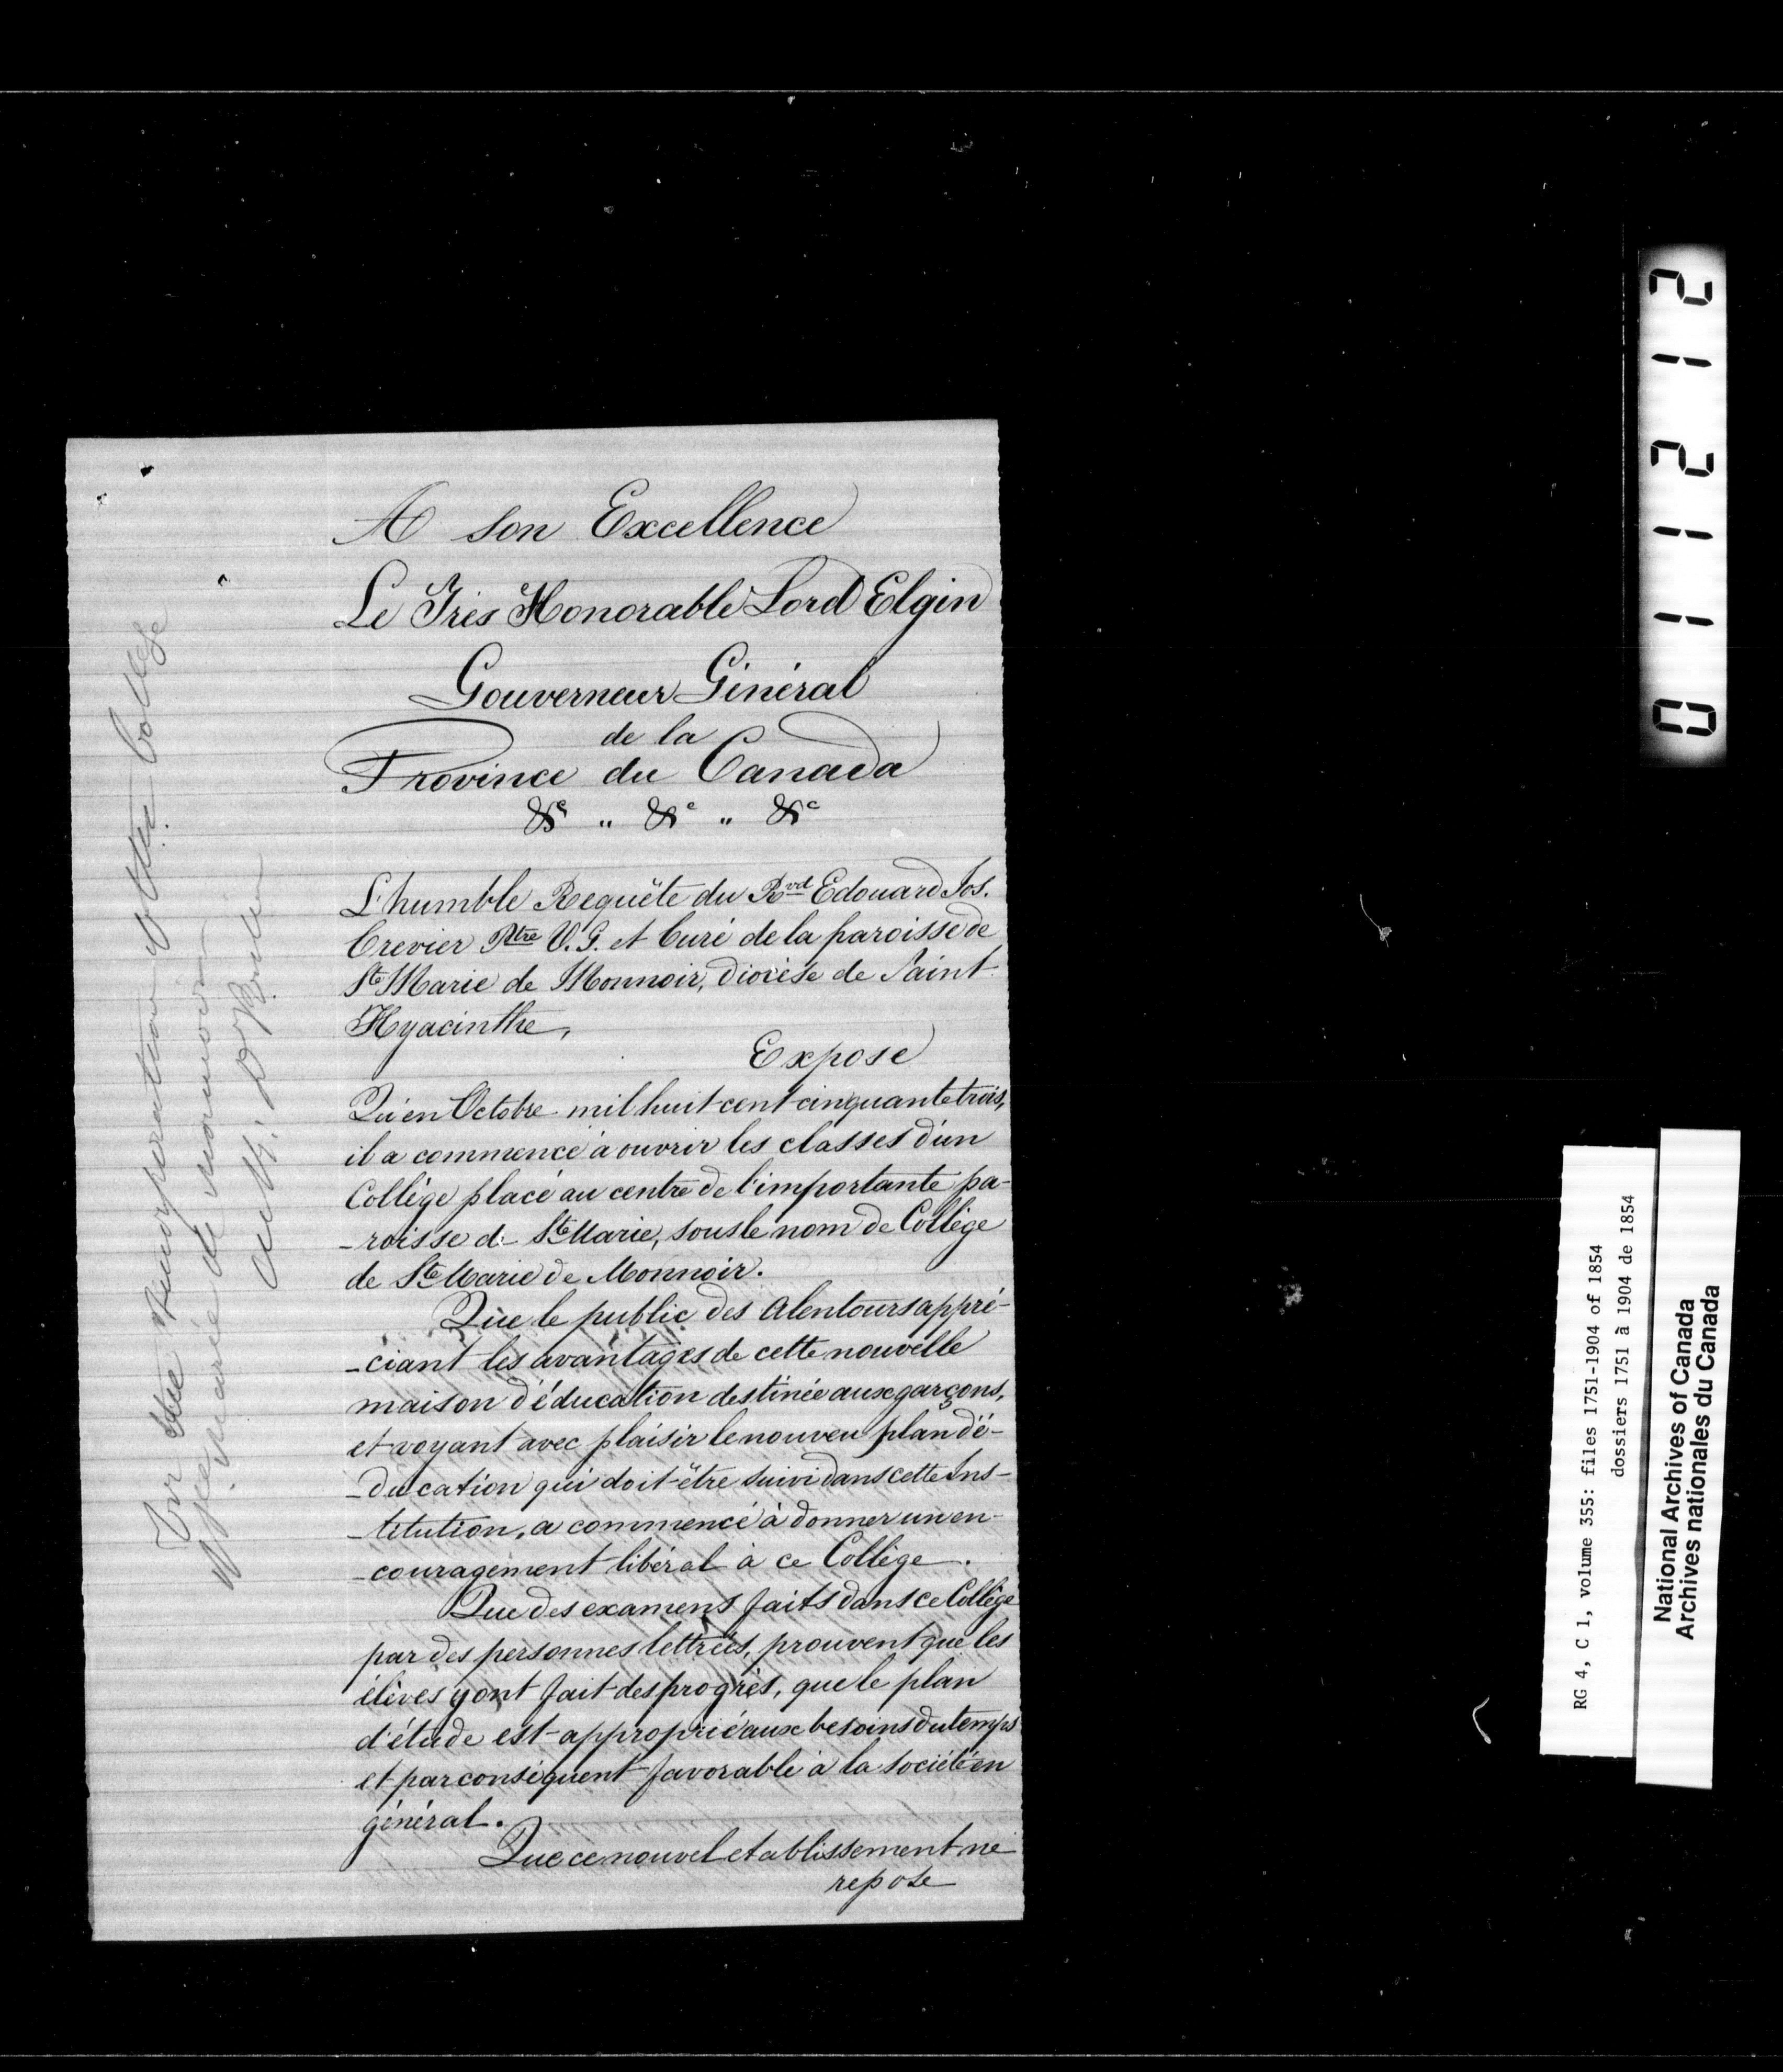 A son Excellence
Le Très Honorable Lord Elgin
Gouverneur Général
de la
Province du Canada
&c „ &c „ &c
L'humble Requête du Rvd Edouard Jos.
Crevier Ptre V.G. et Curé de la paroisse de
Ste Marie de Monnoir, diocèse de Saint-
Hyacinthe,
Expose
Qu'en Octobre mil huit-cent-cinquante trois,
il a commencé à ouvrir les classes d'un
Collège placé au centre de l'importante pa-
-roisse de Ste Marie, sous le nom de Collège
de Ste Marie de Monnoir.
Que le public des alentours appré-
-ciant les avantages de cette nouvelle
maison d'éducation destinée aux garçons,
et voyant avec plaisir le nouveu plan d'é-
-ducation qui doit-être suivi dans cette Ins-
-titution, a commencé à donner un en-
-couragement libéral à ce Collège.
Que des examens faits dans ce Collège
par des personnes lettrées, prouvent que les
élèves y ont fait des progrès, que le plan
d'étude est approprié aux besoins du temps
et par conséquent favorable à la société en
général.
Que ce nouvel etablissement ne
repose
For the Incorporation of the College
of Ste marie de monnoir
01121 2
RG 4, C 1, volume 355: files 1751-1904 of 1854
dossiers 1751 à 1904 de 1854
National Archives of Canada
Archives nationales du Canada